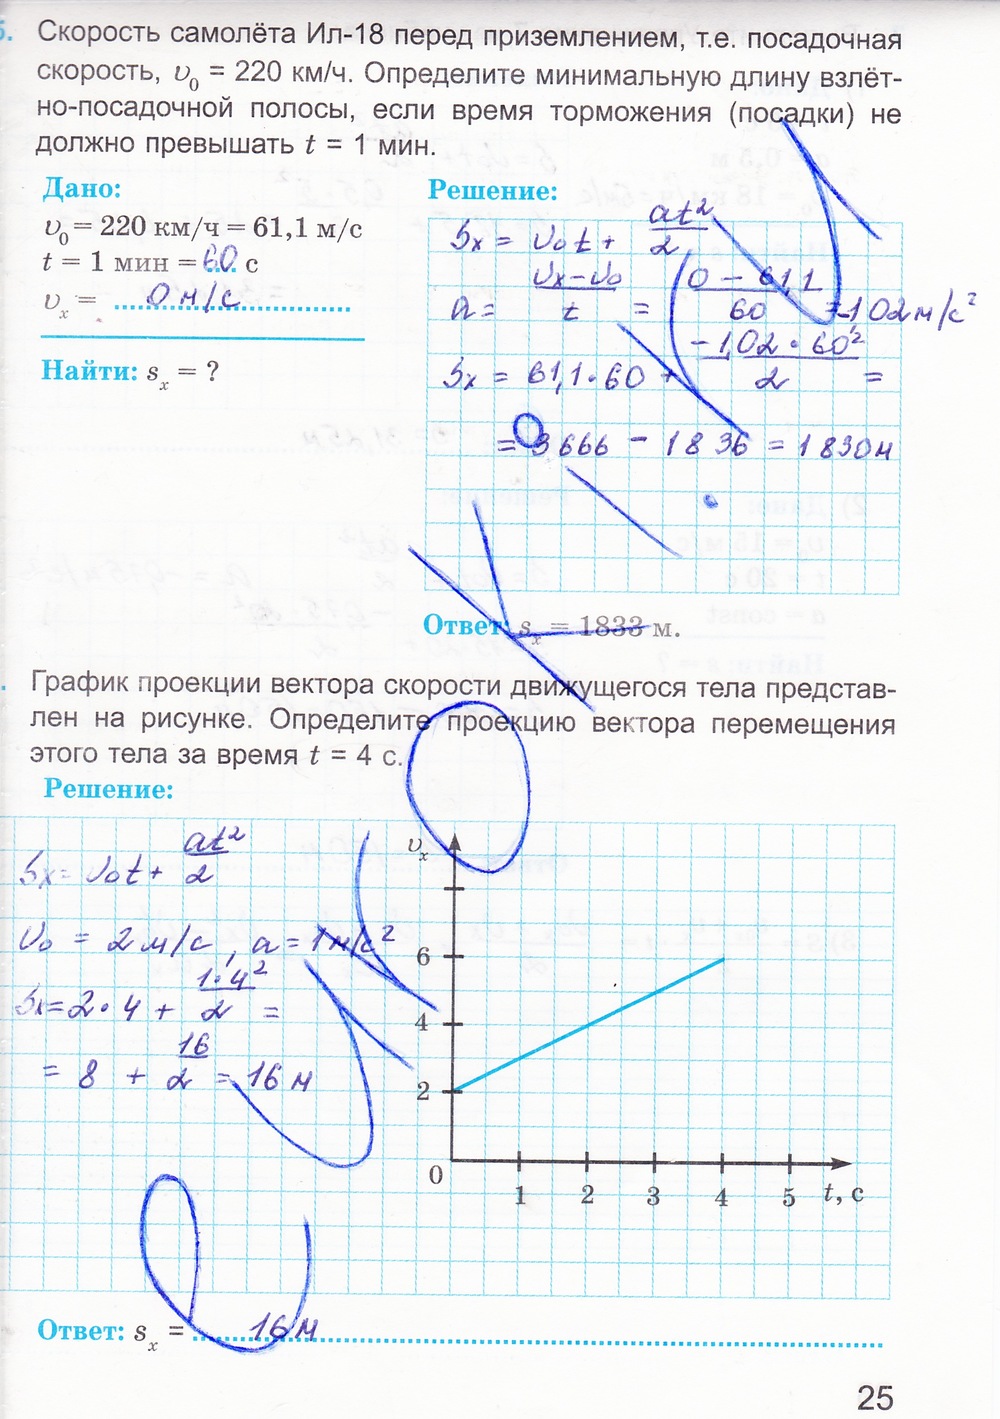 5. Скорость самолёта Ил-18 перед приземлением, т.е. посадочная
скорость, υ₀ = 220 км/ч. Определите минимальную длину взлёт-
но-посадочной полосы, если время торможения (посадки) не
должно превышать t = 1 мин.
Дано:
υ₀ = 220 км/ч = 61,1 м/с
t = 1 мин = 60 с
υₓ = 0 м/с
Найти: sₓ = ?
Решение:
Sx = υ₀t + at²/2
a = (υx – υ₀)/t = (0 – 61,1)/60 = -1,02 м/с²
Sx = 61,1 · 60 + (-1,02 · 60²)/2 =
= 3666 - 1836 = 1830 м
Ответ: sₓ = 1833 м.
График проекции вектора скорости движущегося тела представ-
лен на рисунке. Определите проекцию вектора перемещения
этого тела за время t = 4 с.
Решение:
Sx = υ₀t + at²/2
υ₀ = 2 м/с, a = 1 м/с²
Sx = 2 · 4 + (1 · 4²)/2 =
= 8 + 16/2 = 16 м
υₓ
6
4
2
0
1 2 3 4 5 t, с
Ответ: sₓ = 16 м
25